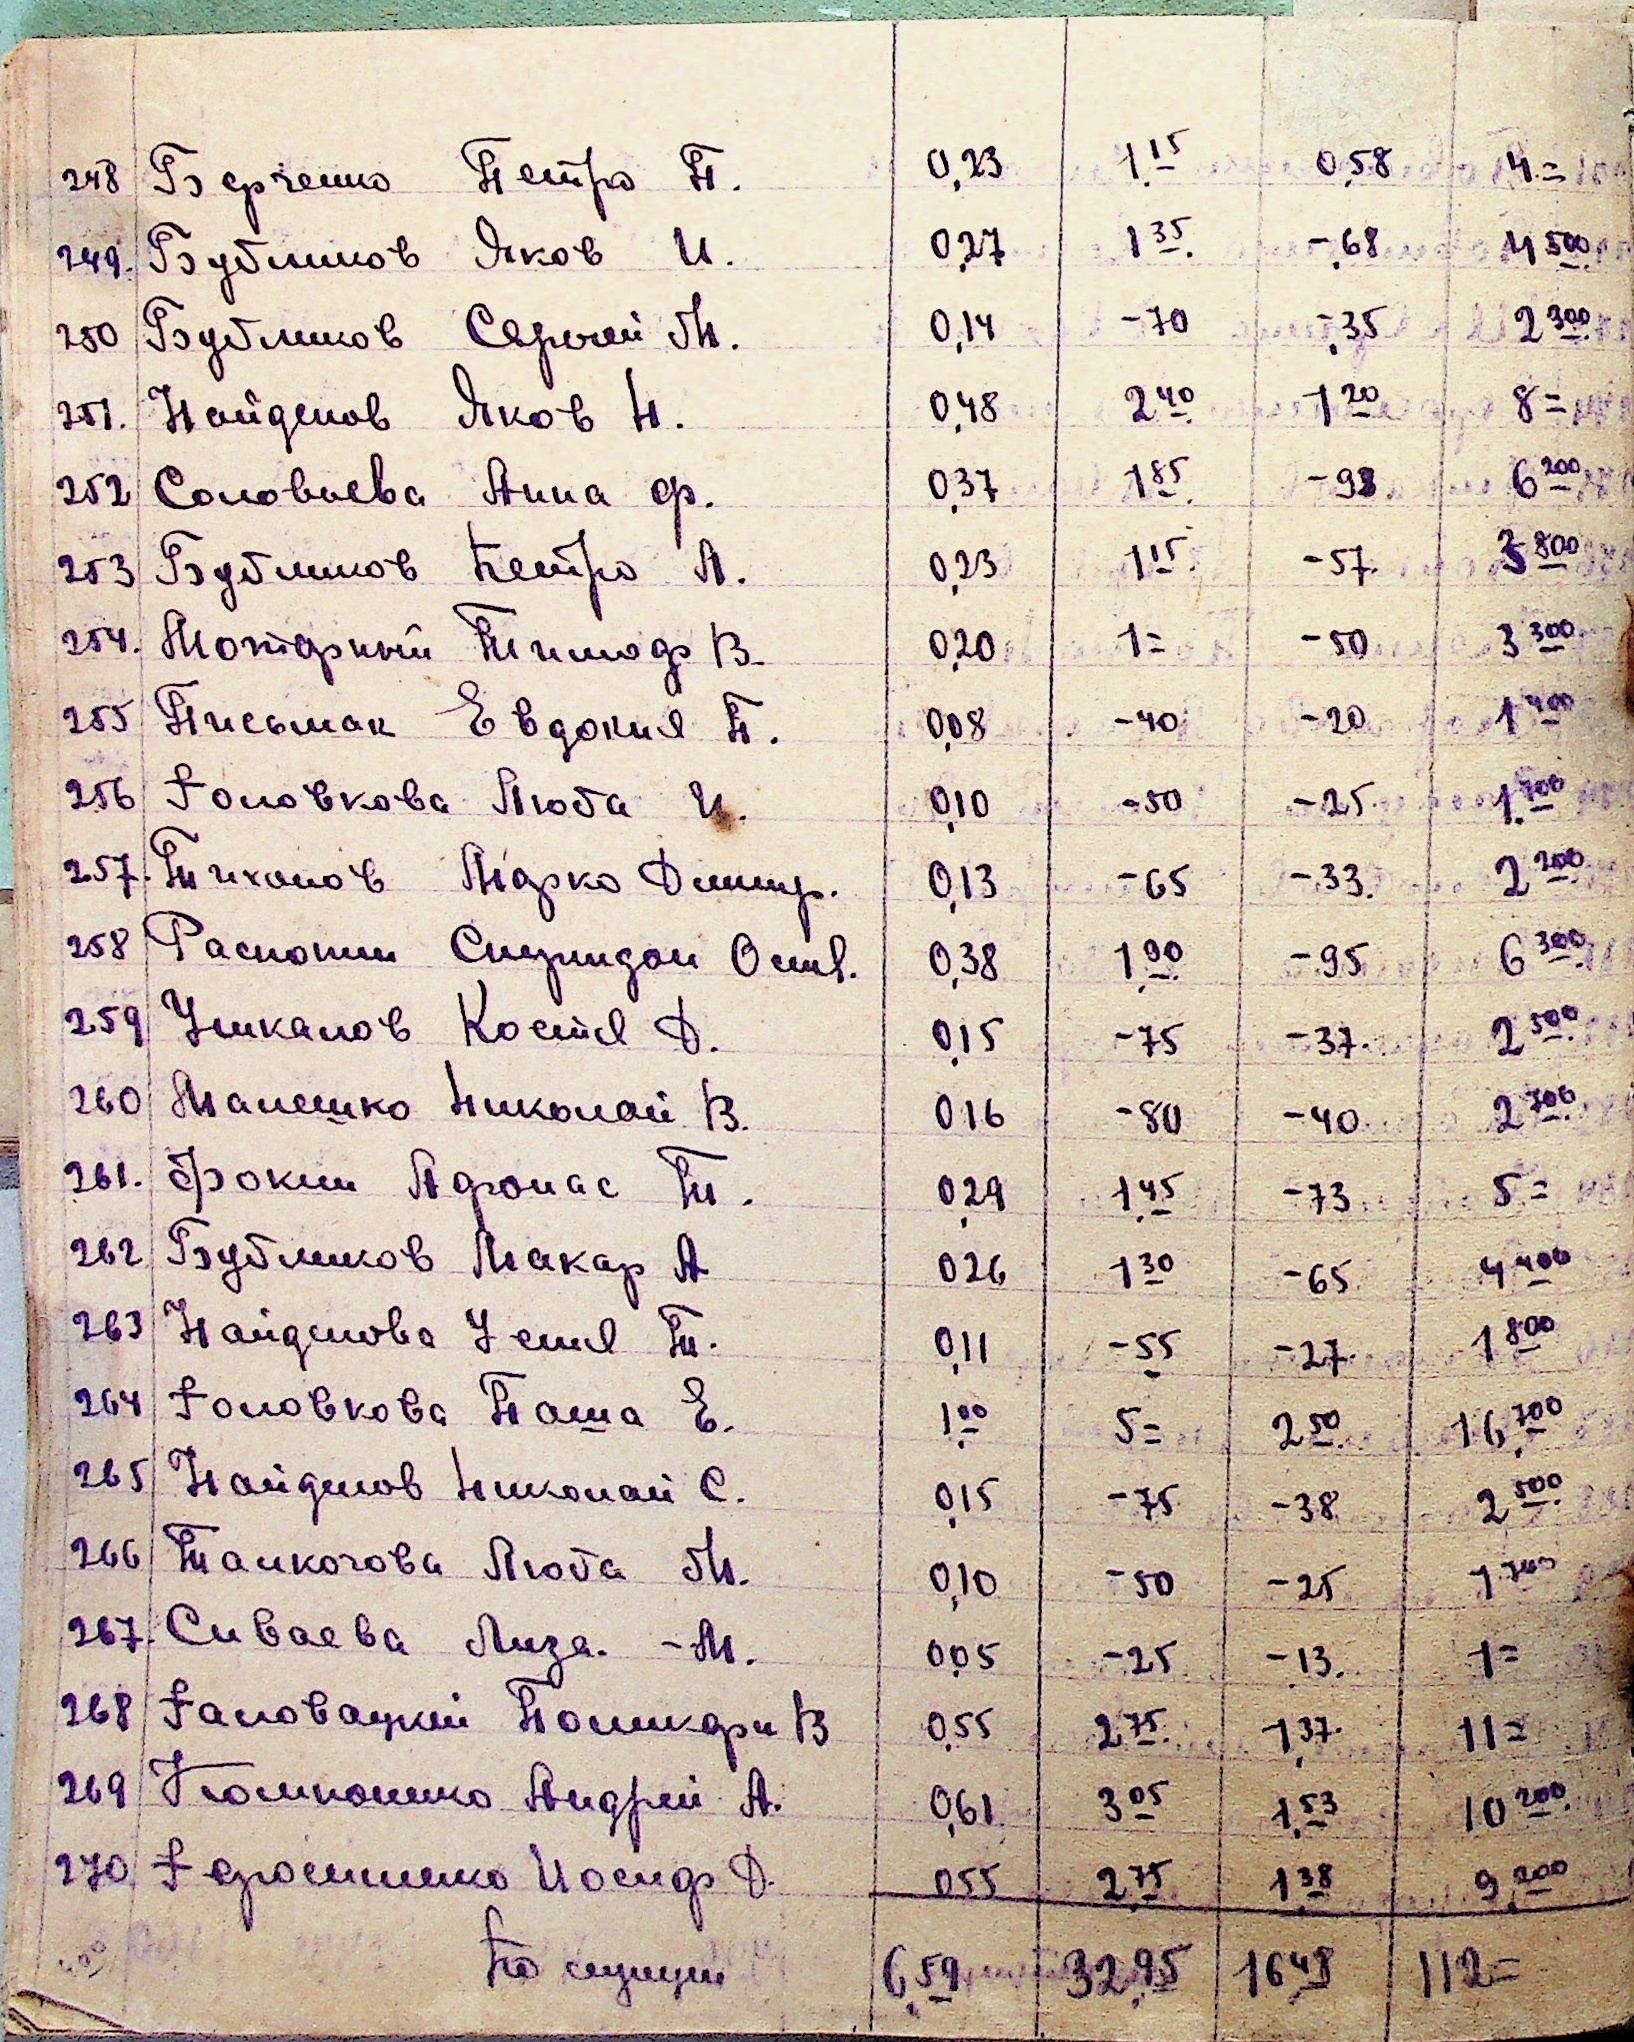 248 Берченко Петро П. 0,23 1.15 0,58 4=
249. Бубликов Яков И. 0,27 1 35. -,68 4 500.
250 Бубликов Сергей М. 0,14 -70 -,35 2 300.
251. Найденов Яков Н. 0,48 2 40. 1 20 8=
252 Соловьева Анна Ф. 0,37 1 85. -98 6 200
253 Бубликов Петро А. 0,23 1 15. -57. 3 800
254. Нотарный Тимоф В. 0,20 1= -50 3 300.
255 Письмак Евдокия П. 0,08 -40 -20 1 400
256 Головкова Люба И. 0,10 -50 -25. 1.700
257. Тихонов Марко Дмитр. 0,13 -65 -33. 2 200
258 Распопин Спиридон Оств. 0,38 1,90. -95 6 300
259 Ушканов Костя Д. 0,15 -75 -37. 2 500.
260 Малешко Николай В. 0 16 -80 -40 2 700.
261. Фокин Афонас Т. 0,29 1,45 -73 5=
262 Бубликов Макар А 0 26 1 30 -65 4 400
263 Найденова Устя Т. 0,11 -55 -27. 1 800
264 Головкова Паша Е. 1.00 5= 2 50. 16,700
265 Найденов Николай С. 0,15 -75 -38 2 500.
266 Танкогова Люба М. 0,10 -50 -25 1 700
267. Сиваева Лиза. -М. 0,05 -25 -13. 1=
268 Галовацкий Поликарп В 0,55 2 75. 1,37. 11=
269 Компонико Андрей А. 0,61 3 05 1,53 10 200.
270 Герасименко Иосиф Д. 0 55 2,75 1 38 9 200
6,59 32,95 16 48 112=